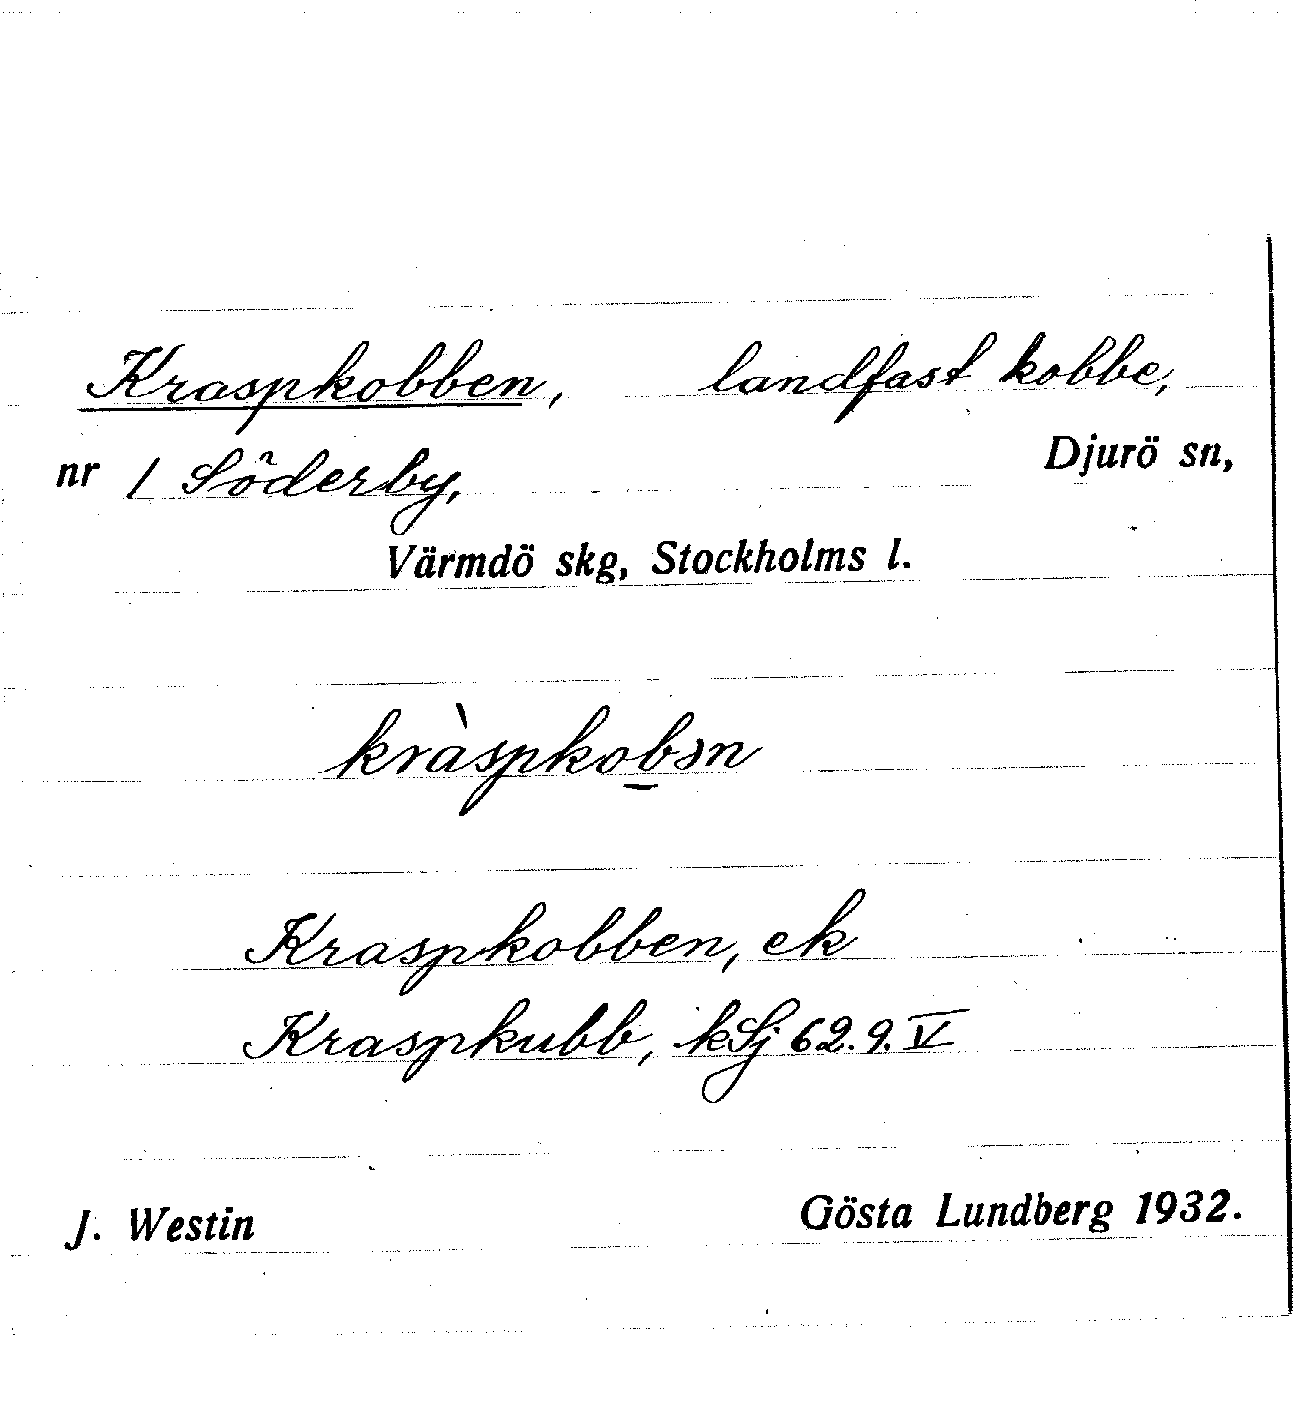 Kraspkobben, landfast kobbe,
nr 1 Söderby, Djurö sn,
Värmdö skg, Stockholms l.
kràspkob̲ən
Kraspkobben, ek
Kraspkubb, kSj 62.9.V
J. Westin Gösta Lundberg 1932.